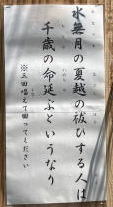 水無月の夏越の祓ひする人は
千歳の命延ぶというなり
※三回唱えて回ってください